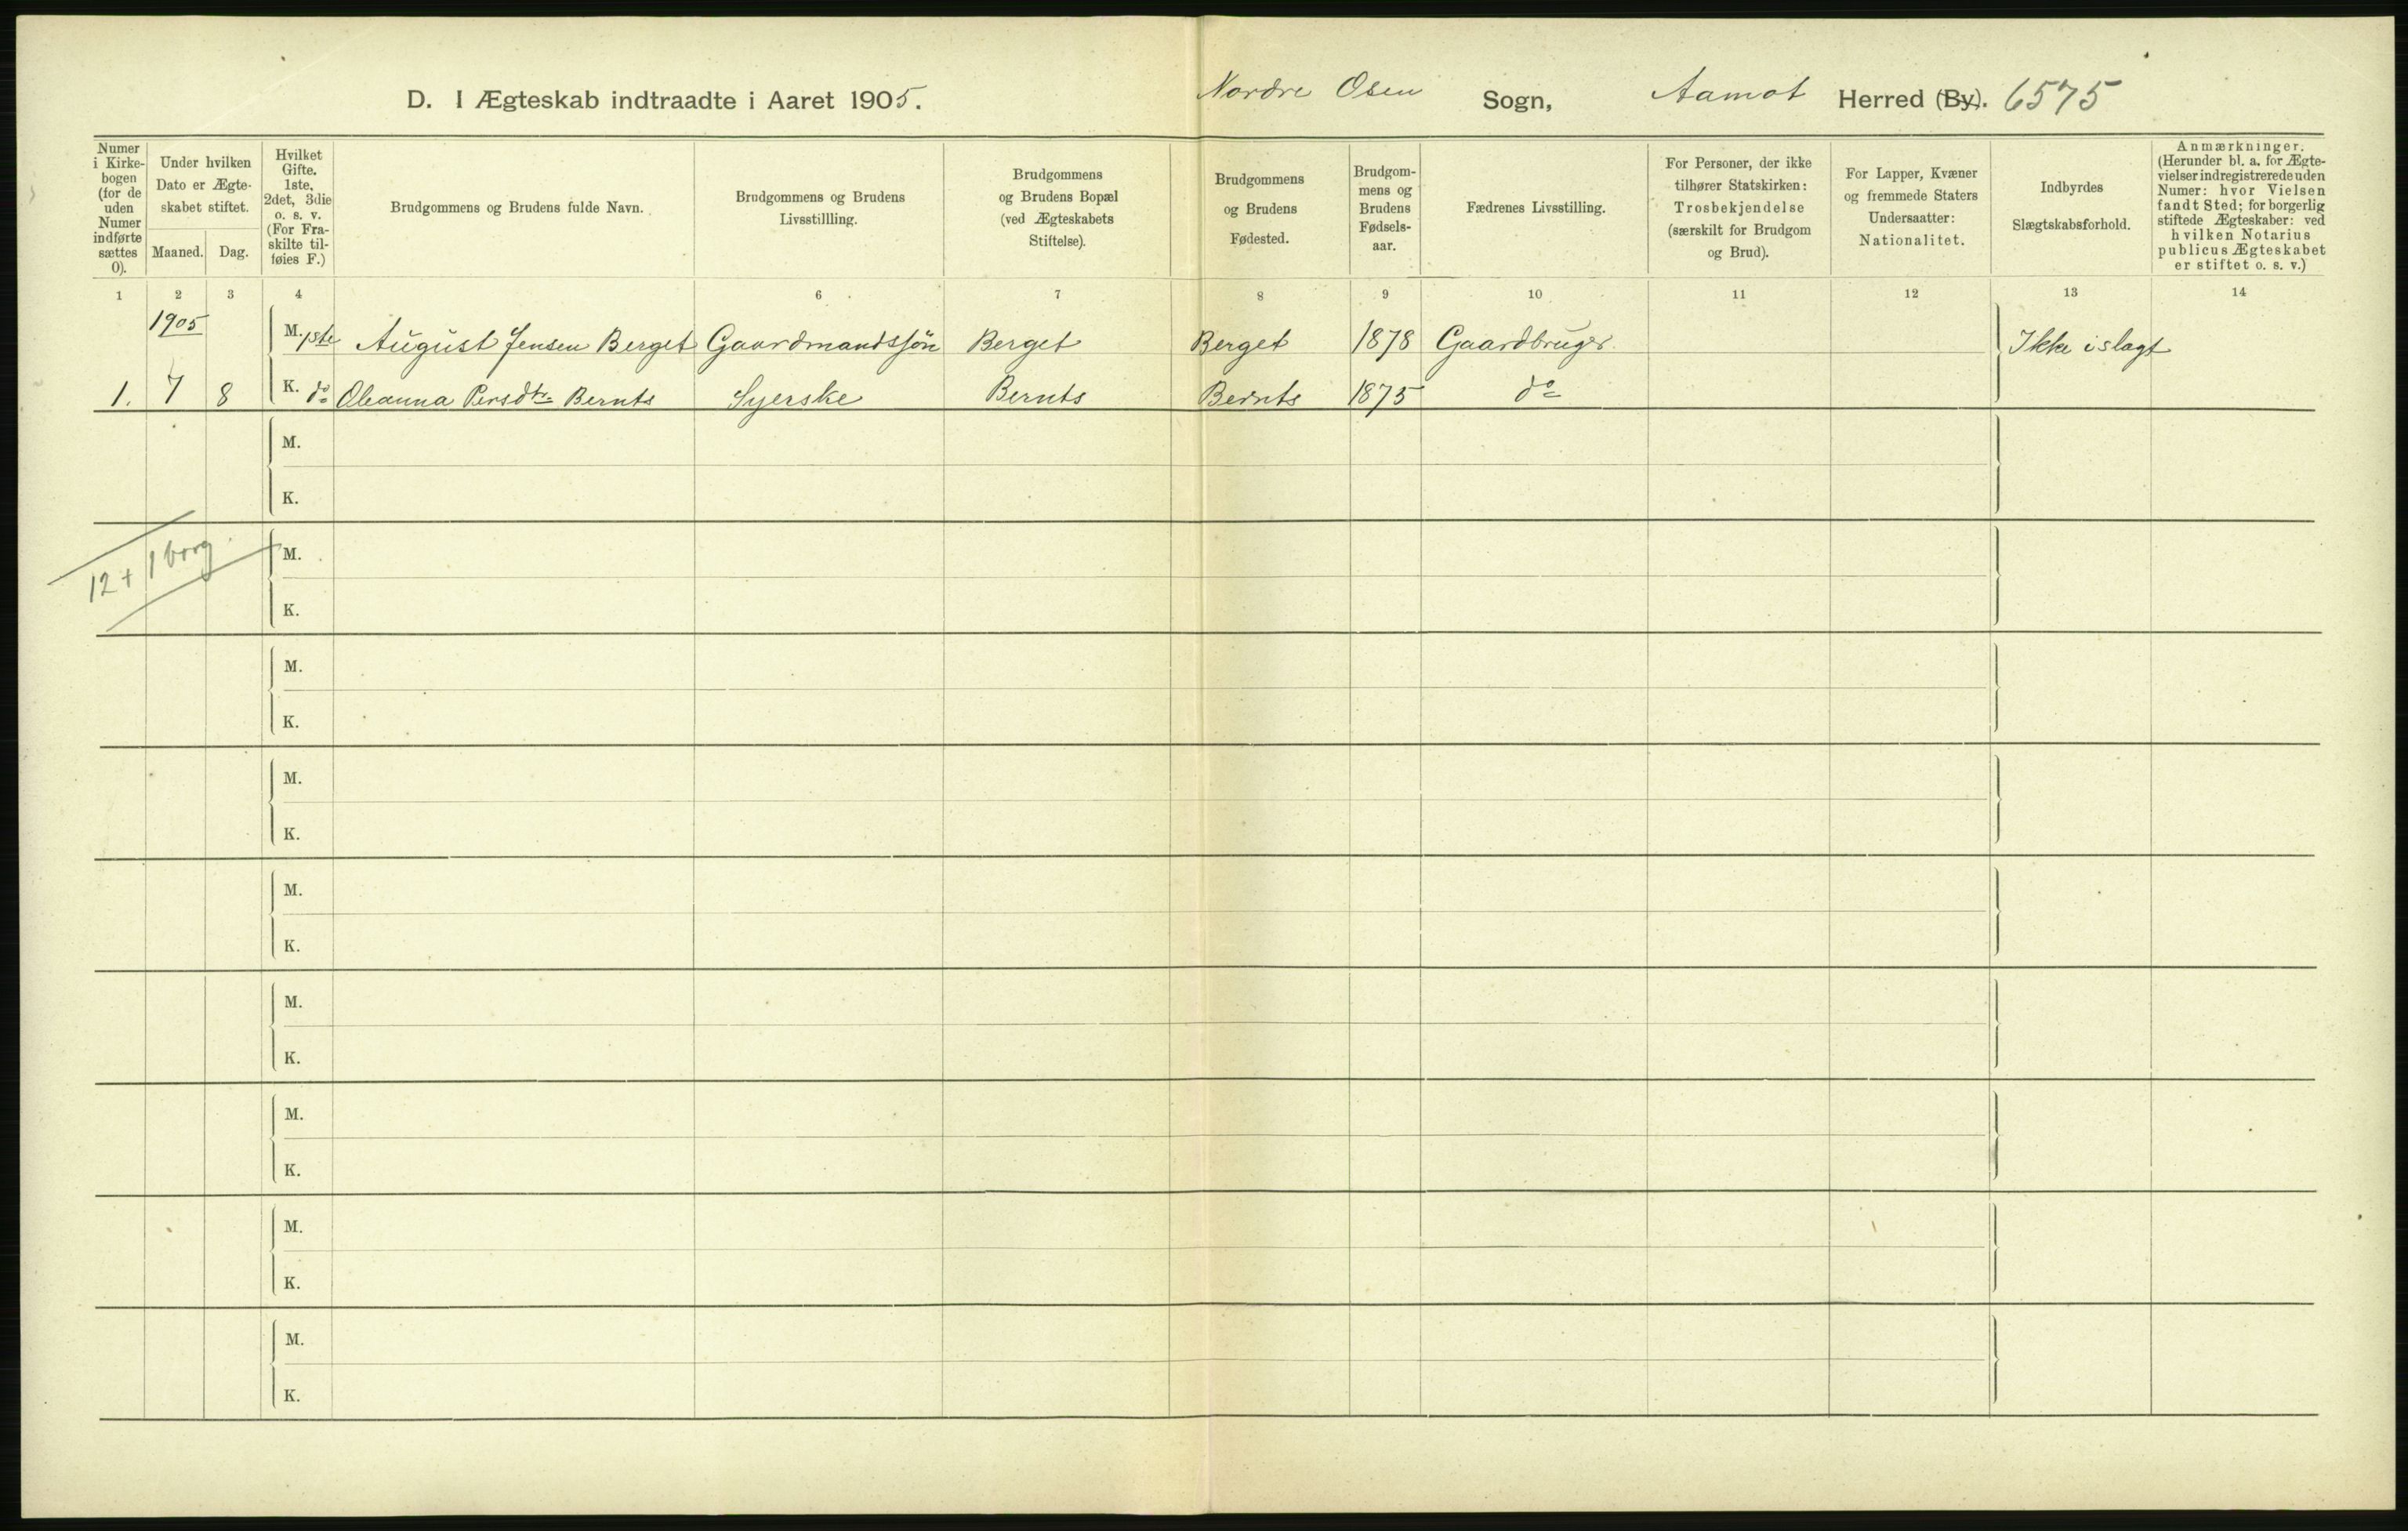 D. I Ægteskab indtraadte i Aaret 1905.
Nordre Osen Sogn, Aamot Herred (By). 6575
Numer i Kirke-bogen (for de uden Numer indførte sættes 0).
Under hvilken Dato er Ægte-skabet stiftet.
Maaned. Dag.
Hvilket Gifte. 1ste, 2det, 3die o. s. v. (For Fra-skilte til-føies F.)
Brudgommens og Brudens fulde Navn.
Brudgommens og Brudens Livsstillling.
Brudgommens og Brudens Bopæl (ved Ægteskabets Stiftelse).
Brudgommens og Brudens Fødested.
Brudgom-mens og Brudens Fødsels-aar.
Fædrenes Livsstilling.
For Personer, der ikke tilhører Statskirken: Trosbekjendelse (særskilt for Brudgom og Brud).
For Lapper, Kvæner og fremmede Staters Undersaatter: Nationalitet.
Indbyrdes Slægtskabsforhold.
Anmærkninger. (Herunder bl. a. for Ægte-vielser indregistrerede uden Numer: hvor Vielsen fandt Sted; for borgerlig stiftede Ægteskaber: ved hvilken Notarius publicus Ægteskabet er stiftet o. s. v.)
1 2 3 4 6 7 8 9 10 11 12 13 14
1905
M. 1ste August Jensen Berget Gaardmandssøn Berget Berget 1878 Gaardbruger. Ikke islagt
1. 7 8 K. do Oleanna Persdtr. Bernts Syerske Bernts Bernts 1875 do
M.
K.
12 + 1 borg.
M.
K.
M.
K.
M.
K.
M.
K.
M.
K.
M.
K.
M.
K.
M.
K.